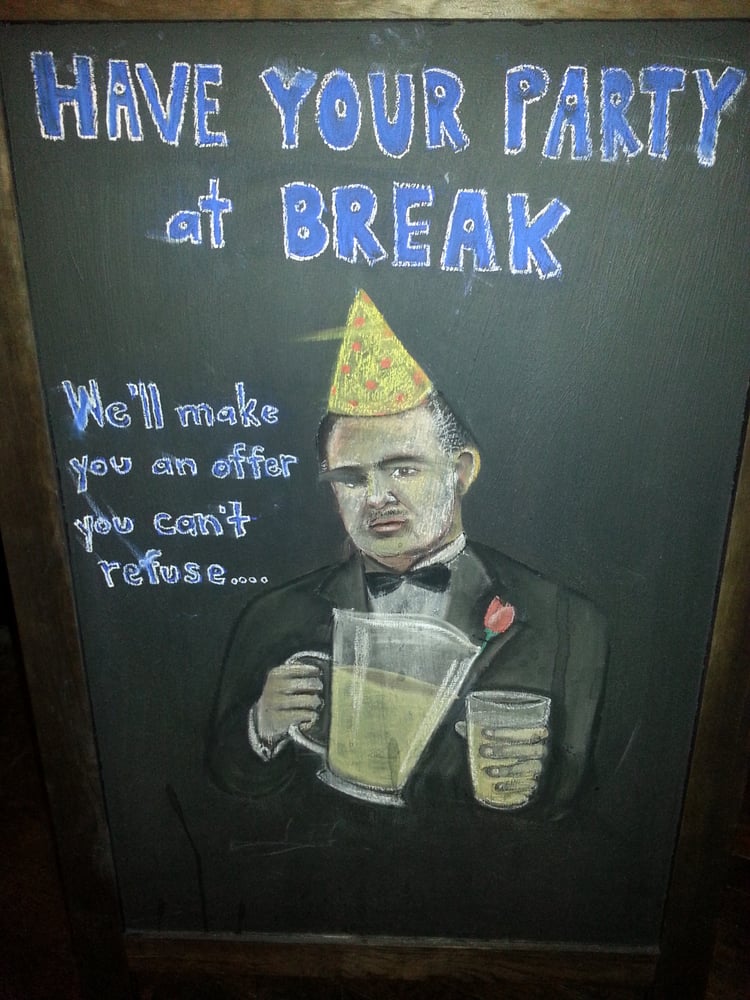 HAVE YOUR PARTY
at BREAK
We'll make
you an offer
you can't
refuse....